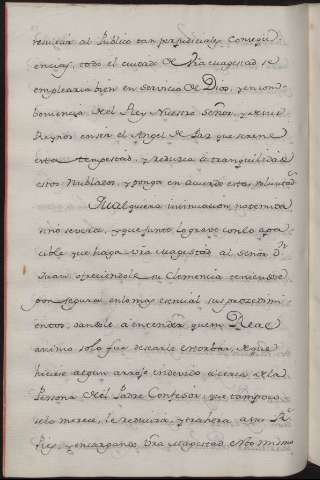 resultar al Publico tan perjudiciales Consequ
encias, todo el cuidado de Vra Magestad se
emplearia bien en servicio de Dios, y en con
beniencia del Rey Nuestro Señor, y de sus
Reynos con ser el Angel de Paz que serene
esta tempestad, y reduzca a tranquilidad
estos Nublados, y ponga en acuerdo estas voluntads
Qualquiera insinuacion, no remita
sino severa, y que junte lo grave con lo apa
cible que haga Vra Magestad al Señor Dn
Juan ofreciendole su Clemencia teniendo
por segura en lo mas esencial sus prozedimi
entos, dandole a entender que mi Real
animo solo fue desearle estorbar, que
hiciese algun arrojo indevido acerca de la
Persona del Padre Confesor que tampoco
se lo merece, le reducira, y trahera a sus Rs
Pies, y encargando Vra Magestad Al mismo